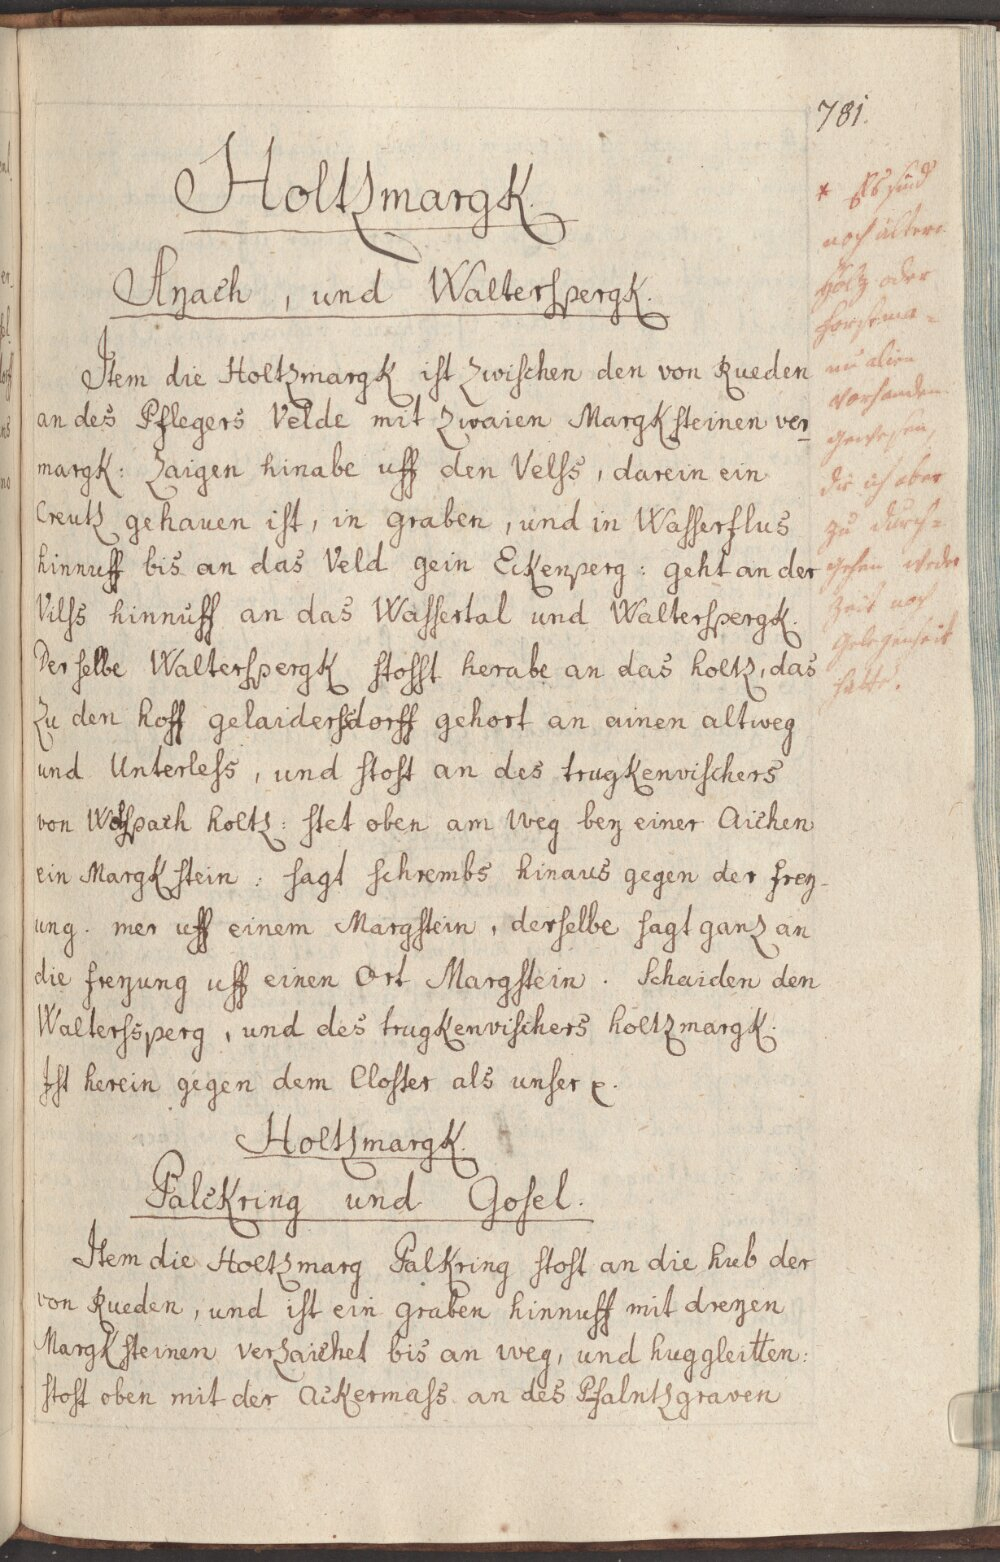 781.
Holtzmargk.
Anach, und Walterspergk.
Item die Holtzmargk ist zwischen den von Rueden
an des Pflegers Velde mit zwaien Margksteinen ver-
margk: zaigen hinabe uff den Velss, darein ein
Creutz gehauen ist, in graben, und in Wasserflus
hinnuff bis an das Veld gein Eckenperg: geht an der
Vilss hinnuff an das Wassertal und Walterspergk.
Derselbe Walterspergk stosst herabe an das holtz, das
zu den hoff gelaidersdorff gehort an ainen altweg
und Unterless, und stost an des trugkenvischers
von holtz: stet oben am weg bey einer Aichen
ein Margkstein: sagt schrembs hinaus gegen der frey-
ung. mer uff einem Margstein, derselbe sagt ganz an
die freyung uff einen Ort Margstein. Schaiden den
Waltersperg, und des trugkenvischers holtzmargk.
Ist herein gegen dem Closter als unser
Holtzmargk.
Palckring und Gosel.
Item die Holtzmarg Palkring stost an die hub der
von Rueden, und ist ein graben hinnuff mit dreyen
Margksteinen verzaichet bis an weg, und huggleitten:
stost oben mit der Ackermass an des Pfalntzgraven
* Es sind
noch ältere
Holtz oder
vorhanden
gewesen,
die ich aber
zu durch-
gehen weder
Zeit noch
Gelegenheit
hatte.